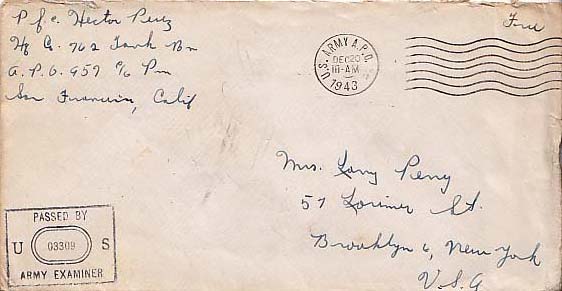 Pfc. Hector Perez
Hq Co. 762 Tank Bn
A.P.O. 957 c/o Pm
San Francisco, Calif
Free
U.S. ARMY A.P.O.
DEC 20
10-AM
1943
Mrs. Perry
57 Lorimer St.
Brooklyn 6, New York
U.S.A
PASSED BY
U 03309 S
ARMY EXAMINER